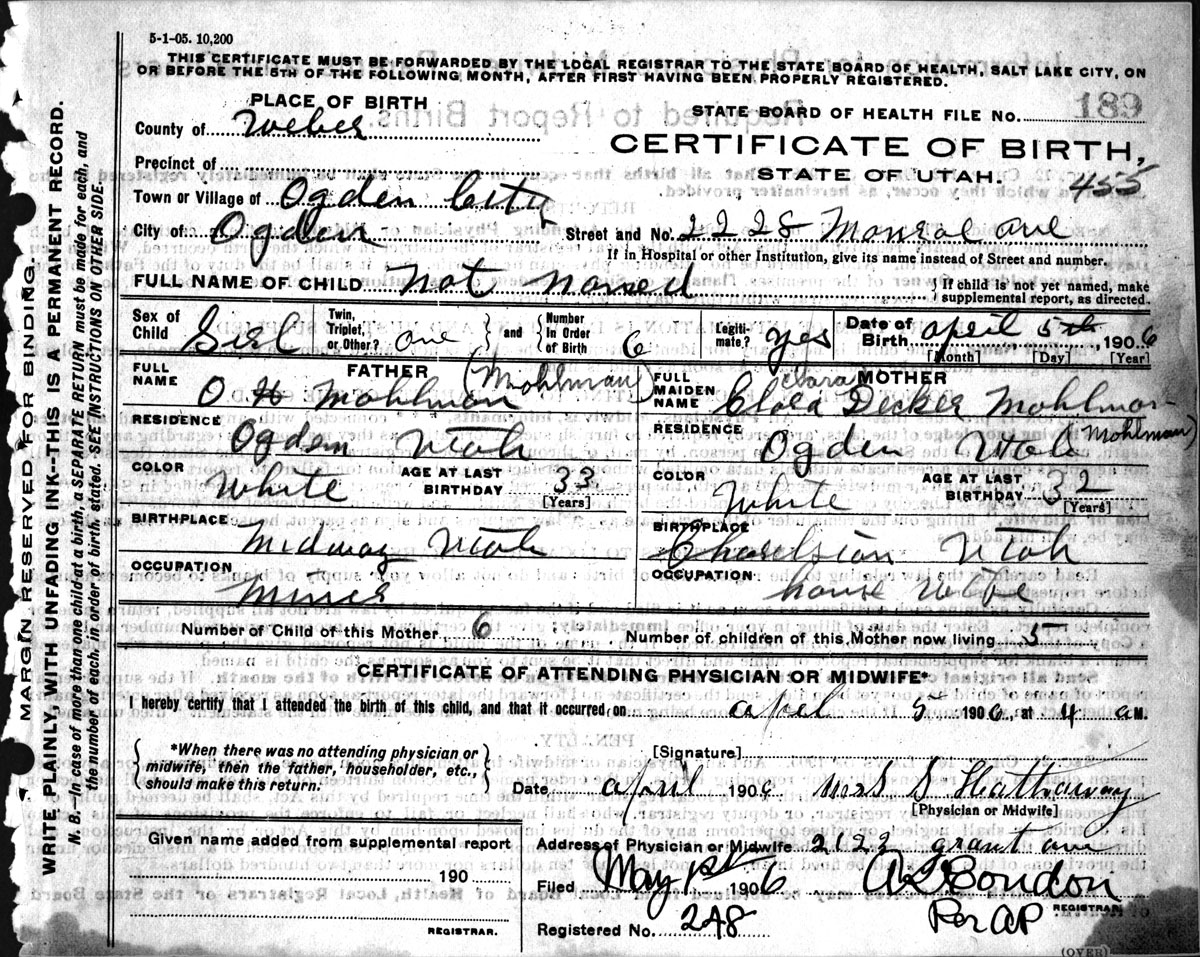 5-1-05. 10,200
THIS CERTIFICATE MUST BE FORWARDED BY THE LOCAL REGISTRAR TO THE STATE BOARD OF HEALTH, SALT LAKE CITY, ON
OR BEFORE THE 5TH OF THE FOLLOWING MONTH, AFTER FIRST HAVING BEEN PROPERLY REGISTERED.
PLACE OF BIRTH
STATE BOARD OF HEALTH FILE No. 189
County of Weber
CERTIFICATE OF BIRTH,
Precinct of
STATE OF UTAH. 455
Town or Village of Ogden City
City of Ogden Street and No. 2228 Monroe ave
If in Hospital or other Institution, give its name instead of Street and number.
FULL NAME OF CHILD Not named { If child is not yet named, make
supplemental report, as directed.
Sex of Child Girl Twin, Triplet, or Other? one } and { Number In Order of Birth 6 Legiti-mate? yes Date of Birth april 5th, 1906
[Month] [Day] [Year]
FULL NAME FATHER O H Mohlman (Mohlman)
FULL MAIDEN NAME MOTHER Clara Clara Decker Mohlman (Mohlman)
RESIDENCE Ogden Utah
RESIDENCE Ogden Utah
COLOR White AGE AT LAST BIRTHDAY 33 [Years]
COLOR White AGE AT LAST BIRTHDAY 32 [Years]
BIRTHPLACE Midway Utah
BIRTHPLACE Utah
OCCUPATION Miner
OCCUPATION house Wife
Number of Child of this Mother, 6 Number of children of this Mother now living 5
CERTIFICATE OF ATTENDING PHYSICIAN OR MIDWIFE*
I hereby certify that I attended the birth of this child, and that it occurred on apel 5 1906, at 4 a M.
{ *When there was no attending physician or
midwife, then the father, householder, etc.,
should make this return. }
[Signature]
Date april 1906 Mrs S Hattaway
[Physician or Midwife]
Given name added from supplemental report
190
REGISTRAR.
Address of Physician or Midwife 2122 grant ave
Filed May 1st 1906
REGISTRAR.
Registered No. 248 Per AP
(OVER)
MARGIN RESERVED FOR BINDING.
WRITE PLAINLY, WITH UNFADING INK--THIS IS A PERMANENT RECORD.
N. B.--In case of more than one child at a birth, a SEPARATE RETURN must be made for each, and
the number of each, in order of birth, stated. SEE INSTRUCTIONS ON OTHER SIDE.